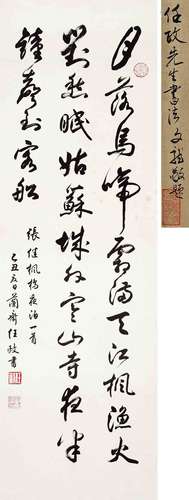 任政先生書法 敬題
月落烏啼霜滿天江楓漁火
對愁眠姑蘇城外寒山寺夜半
鐘聲到客船
張繼楓橋夜泊一首
乙丑夏日蘭齋任政書